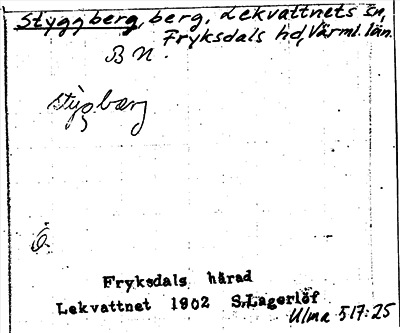 Styggberg, berg, Lekvattnets sn,
Fryksdals hd, Värml. län.
B N.
Ö.
Fryksdals härad
Lekvattnet 1902 S.Lagerlöf
Ulma 517:25